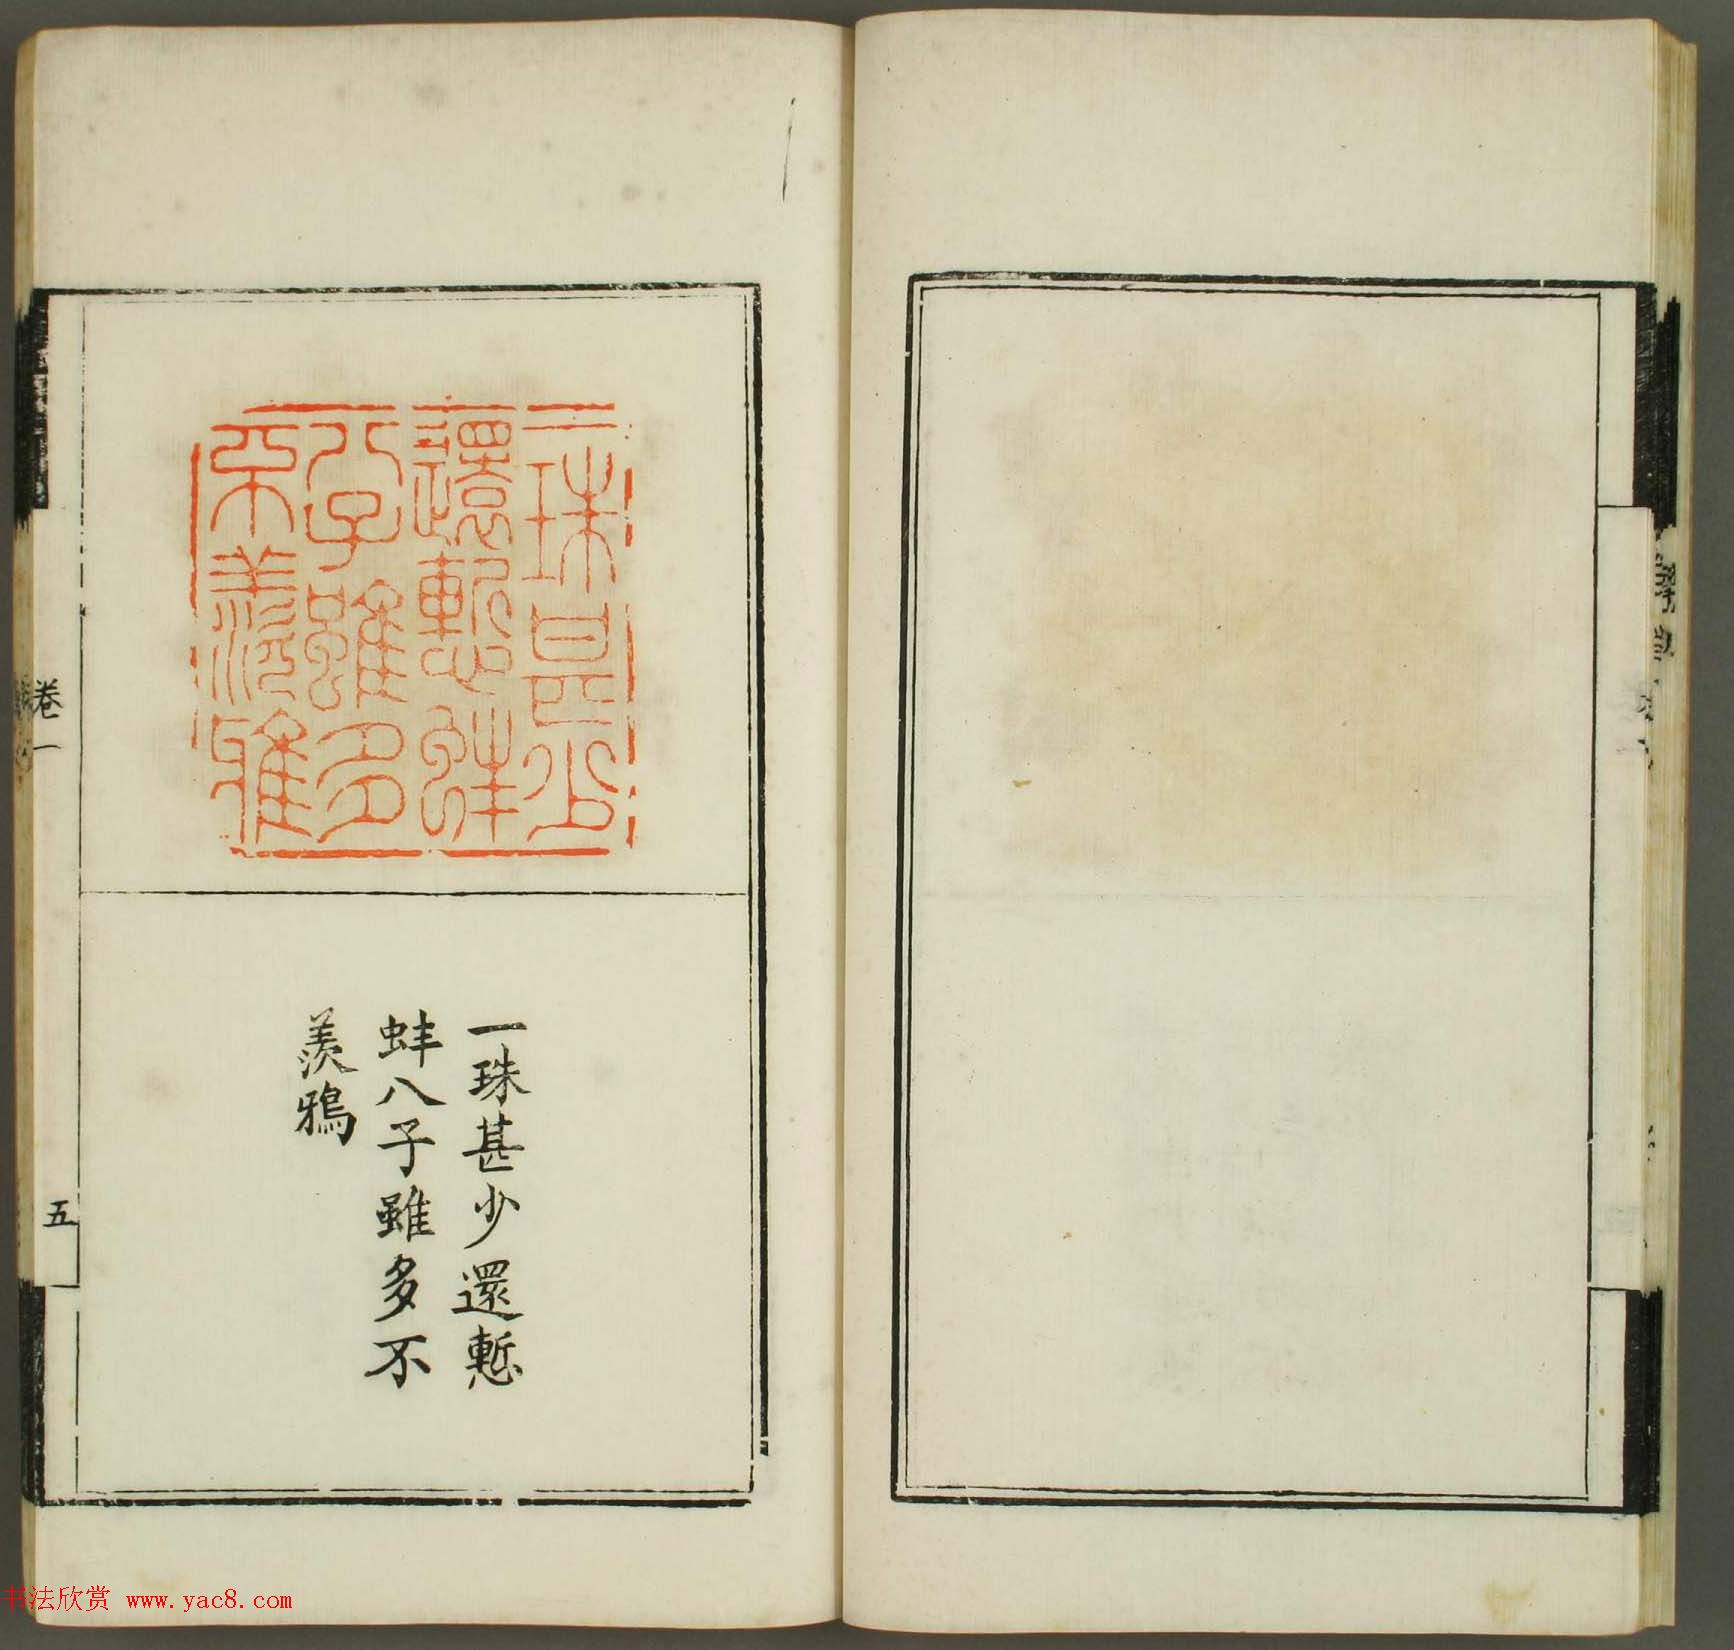 一珠甚少還慙
蚌八子雖多不
羨鴉
一珠甚少
還慙蚌
八子雖多
不羨雅
卷一
五
书法欣赏 www.yac8.com